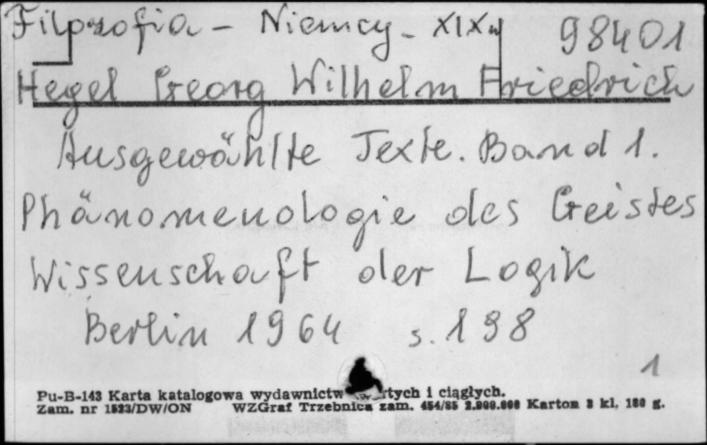 Filozofia - Niemcy - XIXw 98401
Hegel Georg Wilhelm Friedrich
Ausgewählte Texte. Band 1.
Phänomenologie des Geistes
Wissenschaft der Logik
Berlin 1964 s. 198
1
Pu-B-143 Karta katalogowa wydawnictw i ciągłych.
Zam. nr 1523/DW/ON WZGraf Trzebnica zam. 454/85 Karton 3 kl. 180 g.